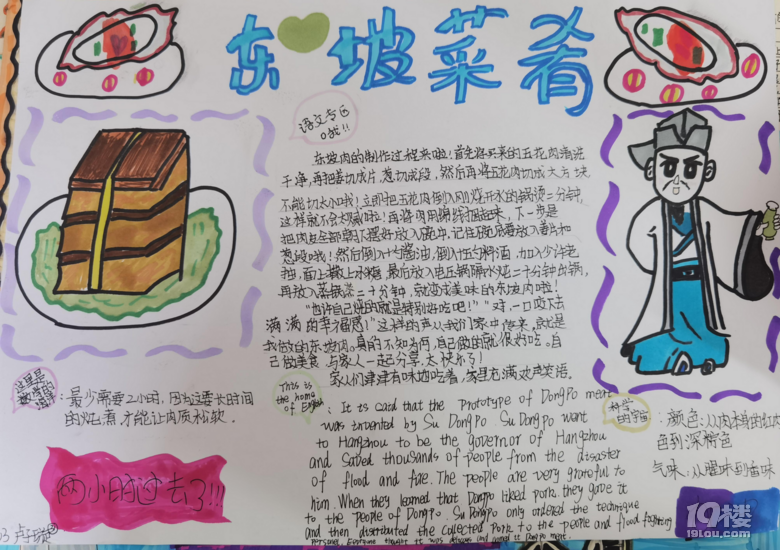 东坡菜肴
语文专区
哦!!
东坡肉的制作过程来啦!首先将买来的五花肉清洗
干净,再把姜切成片,葱切成段,然后再将五花肉切成大方块,
不能切太小哦!立即把五花肉倒入刚烧开水的锅烫二分钟,
把肉皮全部朝下摆好放入碗中,记住碗底要放入姜片和
葱段哦!然后倒入十勺酱油,倒入五勺料酒,加入少许老
抽,面上撒上冰糖,最后放入电压锅隔水炖二十分钟出锅,
再放入蒸锅蒸二十分钟,就变成美味的东坡肉啦!
“也许自己烧的就是特别好吃吧!”“对,一口咬下去
满满的幸福感!”这样的声从我们家中传来,就是
我做的东坡肉。真的不知为何,自己做的就很好吃。自
己做美食,与家人一起分享,太快乐了!
家人们津津有味地吃着,家里充满欢声笑语。
这里是
数学的
:最少需要2小时,因为这要长时间
的炖煮,才能让肉质松软。
两小时过去了!!!
This is
the home
of English
: It is said that the prototype of DongPo meat
was invented by Su DongPo. Su DongPo went
to Hangzhou to be the governor of Hangzhou
and saved thousands of people from the disaster
of flood and fire. The people are very grateful to
him. When they learned that Dongpo liked pork, they gave it
to the people of DongPo. Su DongPo only ordered the technique
and then distributed the collected pork to the people and flood fighting
personel. Everyone thought it was delicious and named it DongPo meat.
科学
的宇宙
:颜色:从肉本身的红肉
色到深褐色
气味:从腥味到香味
19楼
19lou.com